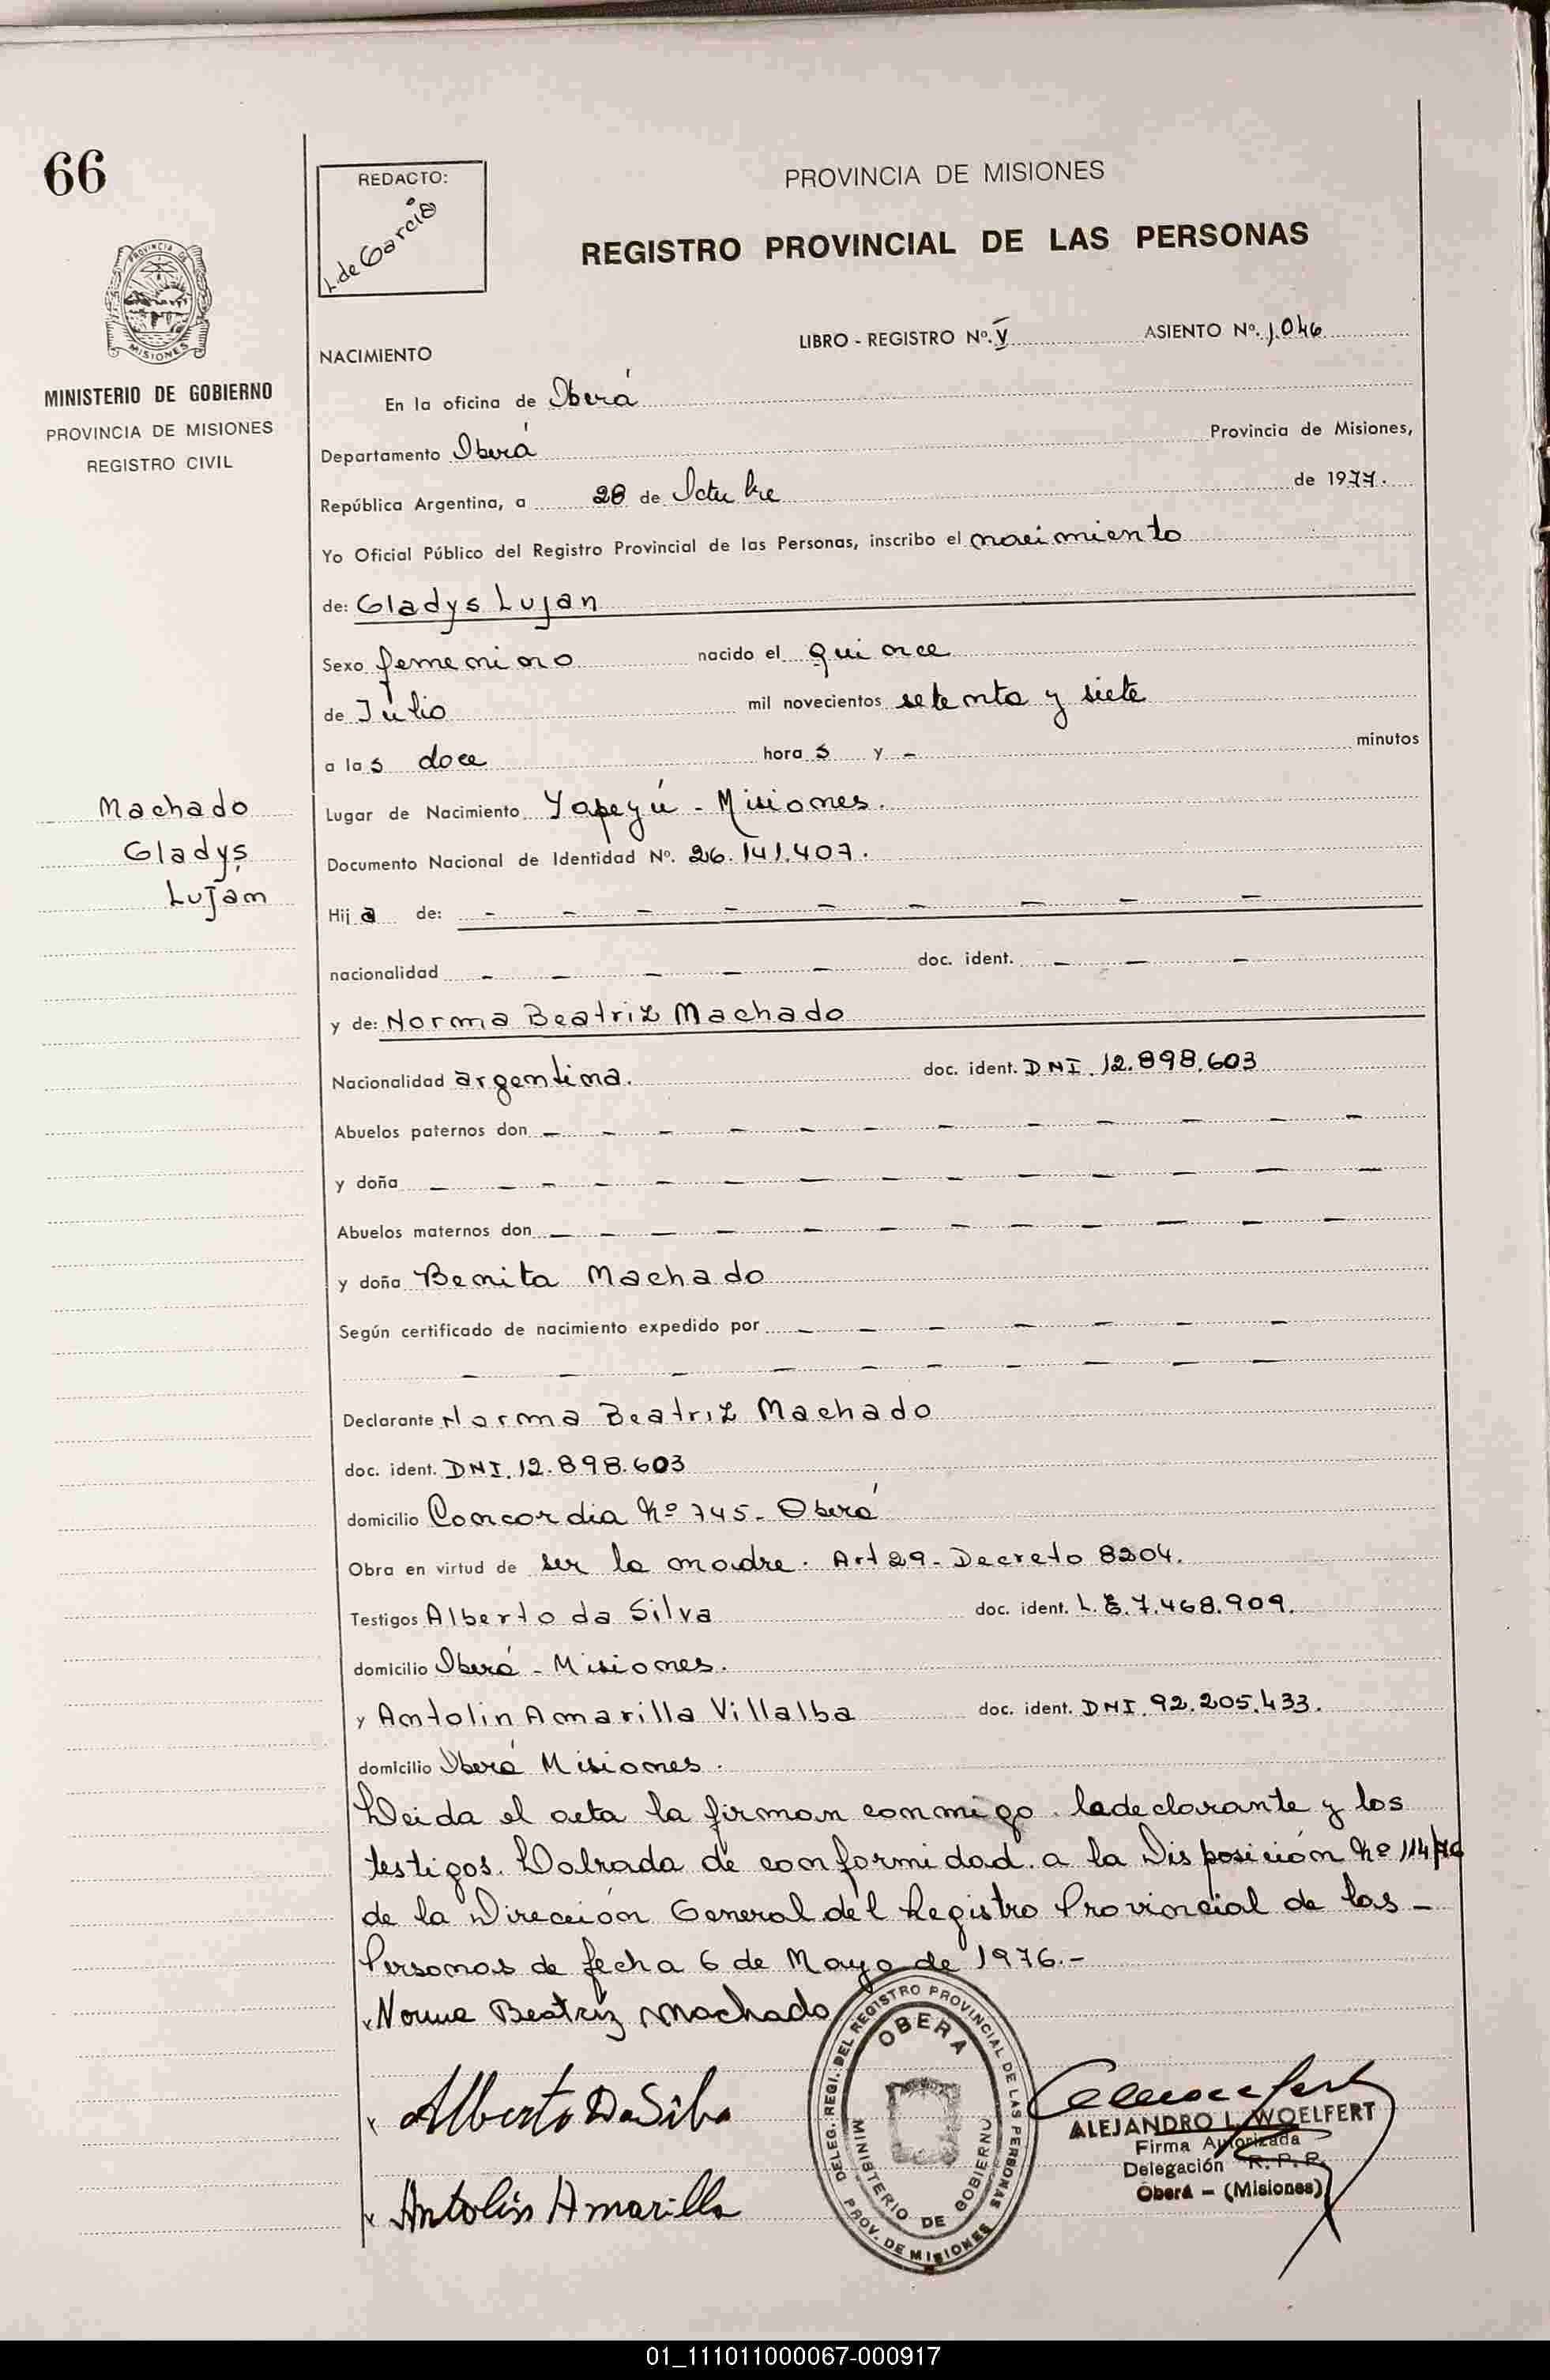 66
REDACTO:
L. de Garcia
PROVINCIA DE MISIONES
REGISTRO PROVINCIAL DE LAS PERSONAS
PROVINCIA DE
MISIONES
MINISTERIO DE GOBIERNO
PROVINCIA DE MISIONES
REGISTRO CIVIL
LIBRO - REGISTRO Nº. V ASIENTO Nº. 1.046
NACIMIENTO
En la oficina de Oberá
Departamento Oberá Provincia de Misiones,
República Argentina, a 28 de Octubre de 1977.
Yo Oficial Público del Registro Provincial de las Personas, inscribo el nacimiento
de: Gladys Lujan
Sexo femenino nacido el quince
de Julio mil novecientos setenta y siete
a las doce horas y - minutos
Machado
Gladys
Lujan
Lugar de Nacimiento Yapeyú - Misiones.
Documento Nacional de Identidad Nº. 26.141.407.
Hija de: - - - - - - - - -
nacionalidad - - - - - doc. ident. - - -
y de: Norma Beatriz Machado
Nacionalidad argentina. doc. ident. DNI. 12.898.603
Abuelos paternos don - - - - - - - - - - -
y doña - - - - - - - - - - -
Abuelos maternos don - - - - - - - - - - -
y doña Benita Machado
Según certificado de nacimiento expedido por - - - - - - -
- - - - - - - - - -
Declarante Norma Beatriz Machado
doc. ident. DNI. 12.898.603
domicilio Concordia Nº 745- Oberá
Obra en virtud de ser la madre. Art 29- Decreto 8204.
Testigos Alberto da Silva doc. ident. L.E. 7.468.909.
domicilio Oberá - Misiones.
y Antolin Amarilla Villalba doc. ident. DNI. 92.205.433.
domicilio Oberá Misiones.
Leida el acta la firman conmigo la declarante y los
testigos. Labrada de conformidad a la Disposición Nº 114/76
de la Dirección General del Registro Provincial de las -
Personas de fecha 6 de Mayo de 1976.-
x Norma Beatriz Machado
x Alberto Da Silva
x Antolin Amarilla
DELEG. REGI. DEL REGISTRO PROVINCIAL DE LAS PERSONAS
OBERA
MINISTERIO DE GOBIERNO
PROV. DE MISIONES
ALEJANDRO L. WOELFERT
Firma Autorizada
Delegación R.P.P.
Oberá - (Misiones)
01_111011000067-000917